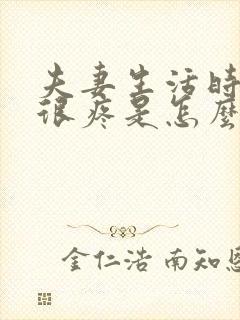 夫妻生活时
很疼是怎麼
金仁浩 南知恩